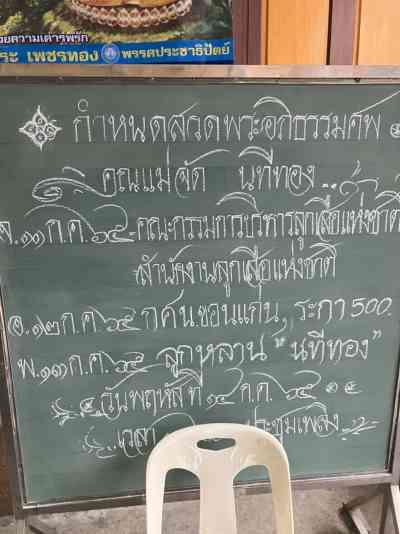 วยความเคารพรัก
ระ เพชรทอง พรรคประชาธิปัตย์
กำหนดสวดพระอภิธรรมศพ
คุณแม่จัด นทีทอง
จ.๑๑ ก.ค. ๖๕ คณะกรรมการบริหารลูกเสือแห่งชาติ
สำนักงานลูกเสือแห่งชาติ
อ.๑๒ ก.ค. ๖๕ กศน.ขอนแก่น, ระกา 500.
พ.๑๓ ก.ค. ๖๕ ลูกหลาน "นทีทอง"
วันพฤหัสที่ ๑๔ ก.ค. ๖๕
เวลา ประชุมเพลิง